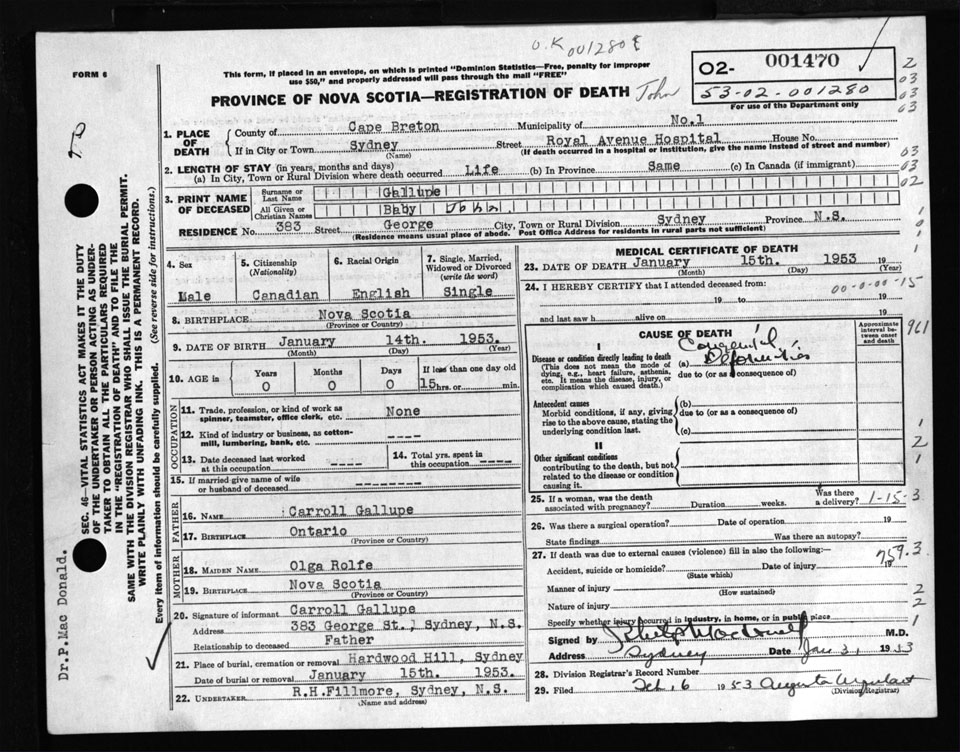 O.K 001280
FORM 6
This form, if placed in an envelope, on which is printed "Dominion Statistics—Free, penalty for improper
use $50," and properly addressed will pass through the mail "FREE"
PROVINCE OF NOVA SCOTIA—REGISTRATION OF DEATH John
O2- 001470
53-02-001280
For use of the Department only
1. PLACE OF DEATH
County of Cape Breton Municipality of No.1
If in City or Town Sydney Street Royal Avenue Hospital House No.
(Name) (If death occurred in a hospital or institution, give the name instead of street and number)
2. LENGTH OF STAY (in years, months and days)
(a) In City, Town or Rural Division where death occurred Life (b) In Province Same (c) In Canada (if immigrant)
3. PRINT NAME OF DECEASED
Surname or Last Name Gallupe
All Given or Christian Names Baby John.
RESIDENCE No. 383 Street George City, Town or Rural Division Sydney Province N.S.
(Residence means usual place of abode. Post Office Address for residents in rural parts not sufficient)
4. Sex
Male
5. Citizenship
(Nationality)
Canadian
6. Racial Origin
English
7. Single, Married,
Widowed or Divorced
(write the word)
Single
8. BIRTHPLACE Nova Scotia
(Province or Country)
9. DATE OF BIRTH January 14th. 1953.
(Month) (Day) (Year)
10. AGE in
Years Months Days If less than one day old
0 0 0 15 hrs. or min.
OCCUPATION
11. Trade, profession, or kind of work as
spinner, teamster, office clerk, etc. None
12. Kind of industry or business, as cotton-
mill, lumbering, bank, etc. ----
13. Date deceased last worked
at this occupation ----
14. Total yrs. spent in
this occupation ----
15. If married give name of wife
or husband of deceased --------
FATHER
16. NAME Carroll Gallupe
17. BIRTHPLACE Ontario
(Province or Country)
MOTHER
18. MAIDEN NAME Olga Rolfe
19. BIRTHPLACE Nova Scotia
(Province or Country)
20. Signature of informant Carroll Gallupe
Address 383 George St., Sydney, N.S.
Relationship to deceased Father
21. Place of burial, cremation or removal Hardwood Hill, Sydney
Date of burial or removal January 15th. 1953.
22. UNDERTAKER R.H.Fillmore, Sydney, N.S.
(Name and address)
MEDICAL CERTIFICATE OF DEATH
23. DATE OF DEATH January 15th. 1953
(Month) (Day) (Year)
24. I HEREBY CERTIFY that I attended deceased from:
00-0-00-15
19 to 19
and last saw h alive on 19
CAUSE OF DEATH
Approximate
interval be-
tween onset
and death
I
Disease or condition directly leading to death
(This does not mean the mode of
dying, e.g., heart failure, asthenia,
etc. It means the disease, injury, or
complication which caused death.)
(a) Congenital
Deformities
due to (or as a consequence of)
Antecedent causes
Morbid conditions, if any, giving
rise to the above cause, stating the
underlying condition last.
(b)
due to (or as a consequence of)
(c)
II
Other significant conditions
contributing to the death, but not
related to the disease or condition
causing it.
25. If a woman, was the death
associated with pregnancy? Duration weeks. Was there
a delivery? 1-15-3
26. Was there a surgical operation? Date of operation 19
State findings Was there an autopsy?
27. If death was due to external causes (violence) fill in also the following:
Accident, suicide or homicide? Date of injury 19
759.3
(State which)
Manner of injury
(How sustained)
Nature of injury
Specify whether injury occurred in industry, in home, or in public place
Signed by M.D.
Address Sydney Date Jan 31 1953
28. Division Registrar's Record Number
29. Filed Feb. 6 1953 Augusta Urquhart
(Division Registrar)
2
03
03
63
03
03
02
1
0
1
1
961
1
2
1
2
2
1
(See reverse side for instructions.)
Every item of information should be carefully supplied.
SEC. 46—VITAL STATISTICS ACT MAKES IT THE DUTY
OF THE UNDERTAKER OR PERSON ACTING AS UNDER-
TAKER TO OBTAIN ALL THE PARTICULARS REQUIRED
IN THE "REGISTRATION OF DEATH" AND TO FILE THE
SAME WITH THE DIVISION REGISTRAR WHO SHALL ISSUE THE BURIAL PERMIT.
WRITE PLAINLY WITH UNFADING INK. THIS IS A PERMANENT RECORD.
Dr.P.Mac Donald.